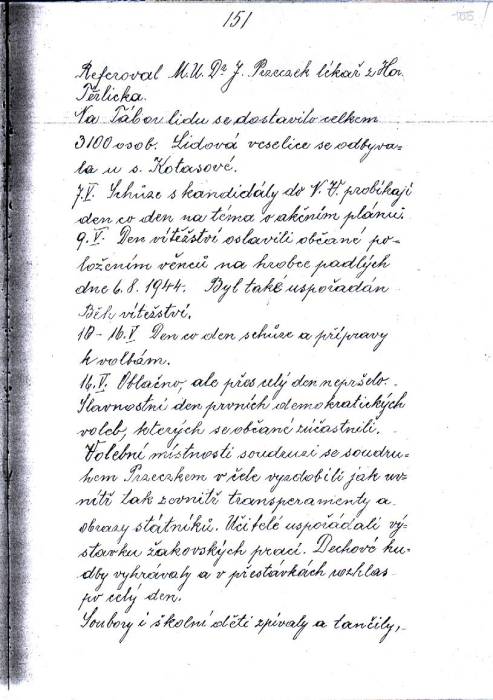 151
Referoval M.U. Dr J. Przeczek lékař z Hor.
Těrlicka.
Na Tábor lidu se dostavilo celkem
3100 osob. Lidová veselice se odbýva-
la u s. Kotasové.
7.V. Schůze s kandidáty do N.V. probíhají
den co den na téma o akčním plánu.
9.V. Den vítězství oslavili občané po-
ložením věnců na hrobce padlých
dne 6.8.1944. Byl také uspořádán
Běh vítězství.
10-16.V Den co den schůze a přípravy
k volbám.
16.V. Oblačno, ale přes celý den nepršelo.
Slavnostní den prvních demokratických
voleb, kterých se občané zúčastnili.
Volební místnosti soudruzi se soudru-
hem Przeczkem v čele vyzdobili jak uv-
nitř tak zovnitř transperamenty a
obrazy státníků. Učitelé uspořádali vý-
stavku žakovských prací. Dechové hu-
dby vyhrávaly a v přestávkách rozhlas
po celý den.
Soubory i školní děti zpívaly a tančily,